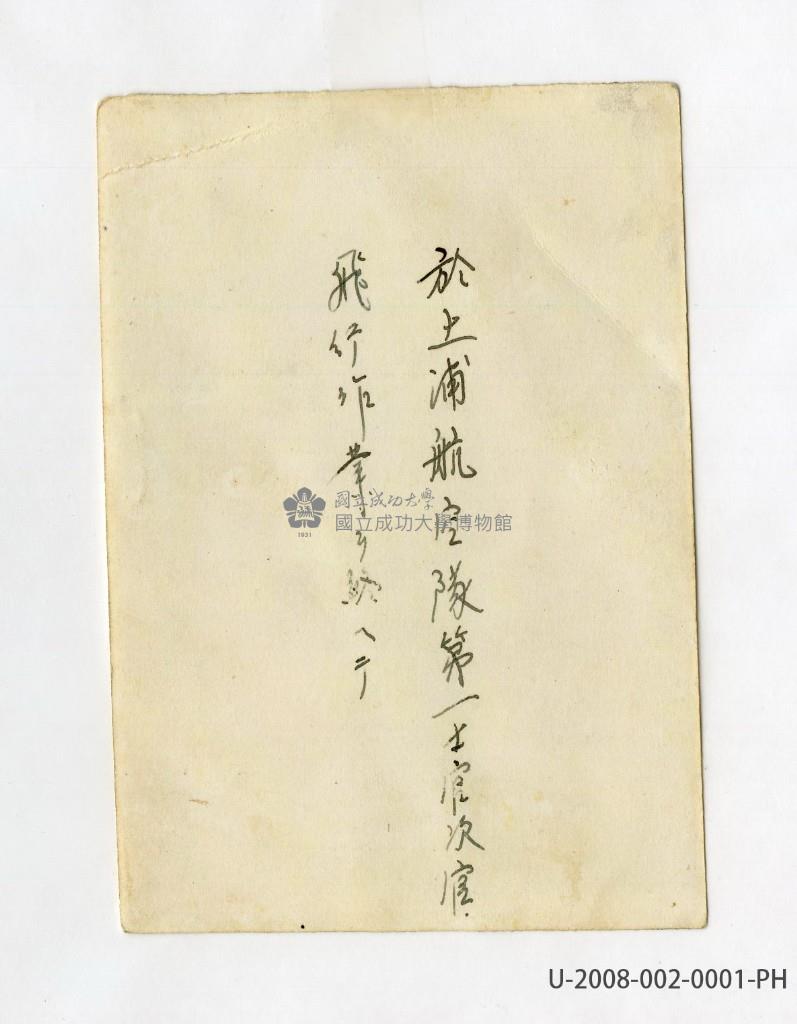 於土浦航空隊第一士官次室
飛行作業ヲ終ヘテ
國立成功大學
國立成功大學博物館
1931
U-2008-002-0001-PH